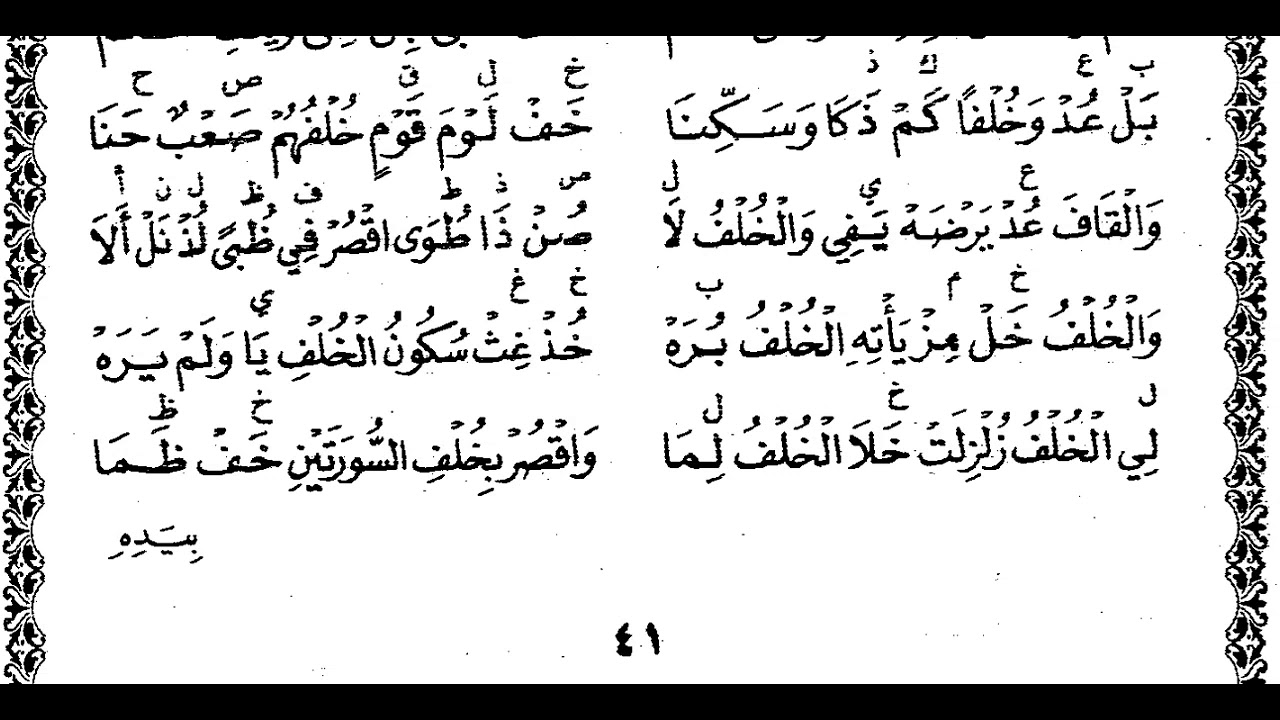 ب ع ك ذ خ ل ق ص ح
بَلْ عُدْ وَخُلْفاً كَمْ ذَكَا وَسَكِّنَا خَفْ لَوْمَ قَوْمٍ خُلْفُهُمْ صَعْبٌ حَنَا
ع ي ل ص ذ ط ف ظ ل ن أ
وَالْقَافَ عُدْ يَرْضَهْ يَفِي وَالْخُلْفُ لَا صُنْ ذَا طُوَى اقْصُرْ فِي ظُبىً لُذْ نَلْ أَلَا
خ م ب خ غ ي
وَالْخُلْفُ خَلْ مِزْ يَأْتِهِ الْخُلْفُ بُرَهْ خُذْ غِثْ سُكُونُ الْخُلْفِ يَا وَلَمْ يَرَهْ
ل خ ل خ ظ
لِي الْخُلْفُ زُلْزِلَتْ خَلَا الْخُلْفُ لِمَا وَاقْصُرْ بِخُلْفِ السُّورَتَيْنِ خَفْ ظَمَا
بِيَدِهِ
٤١